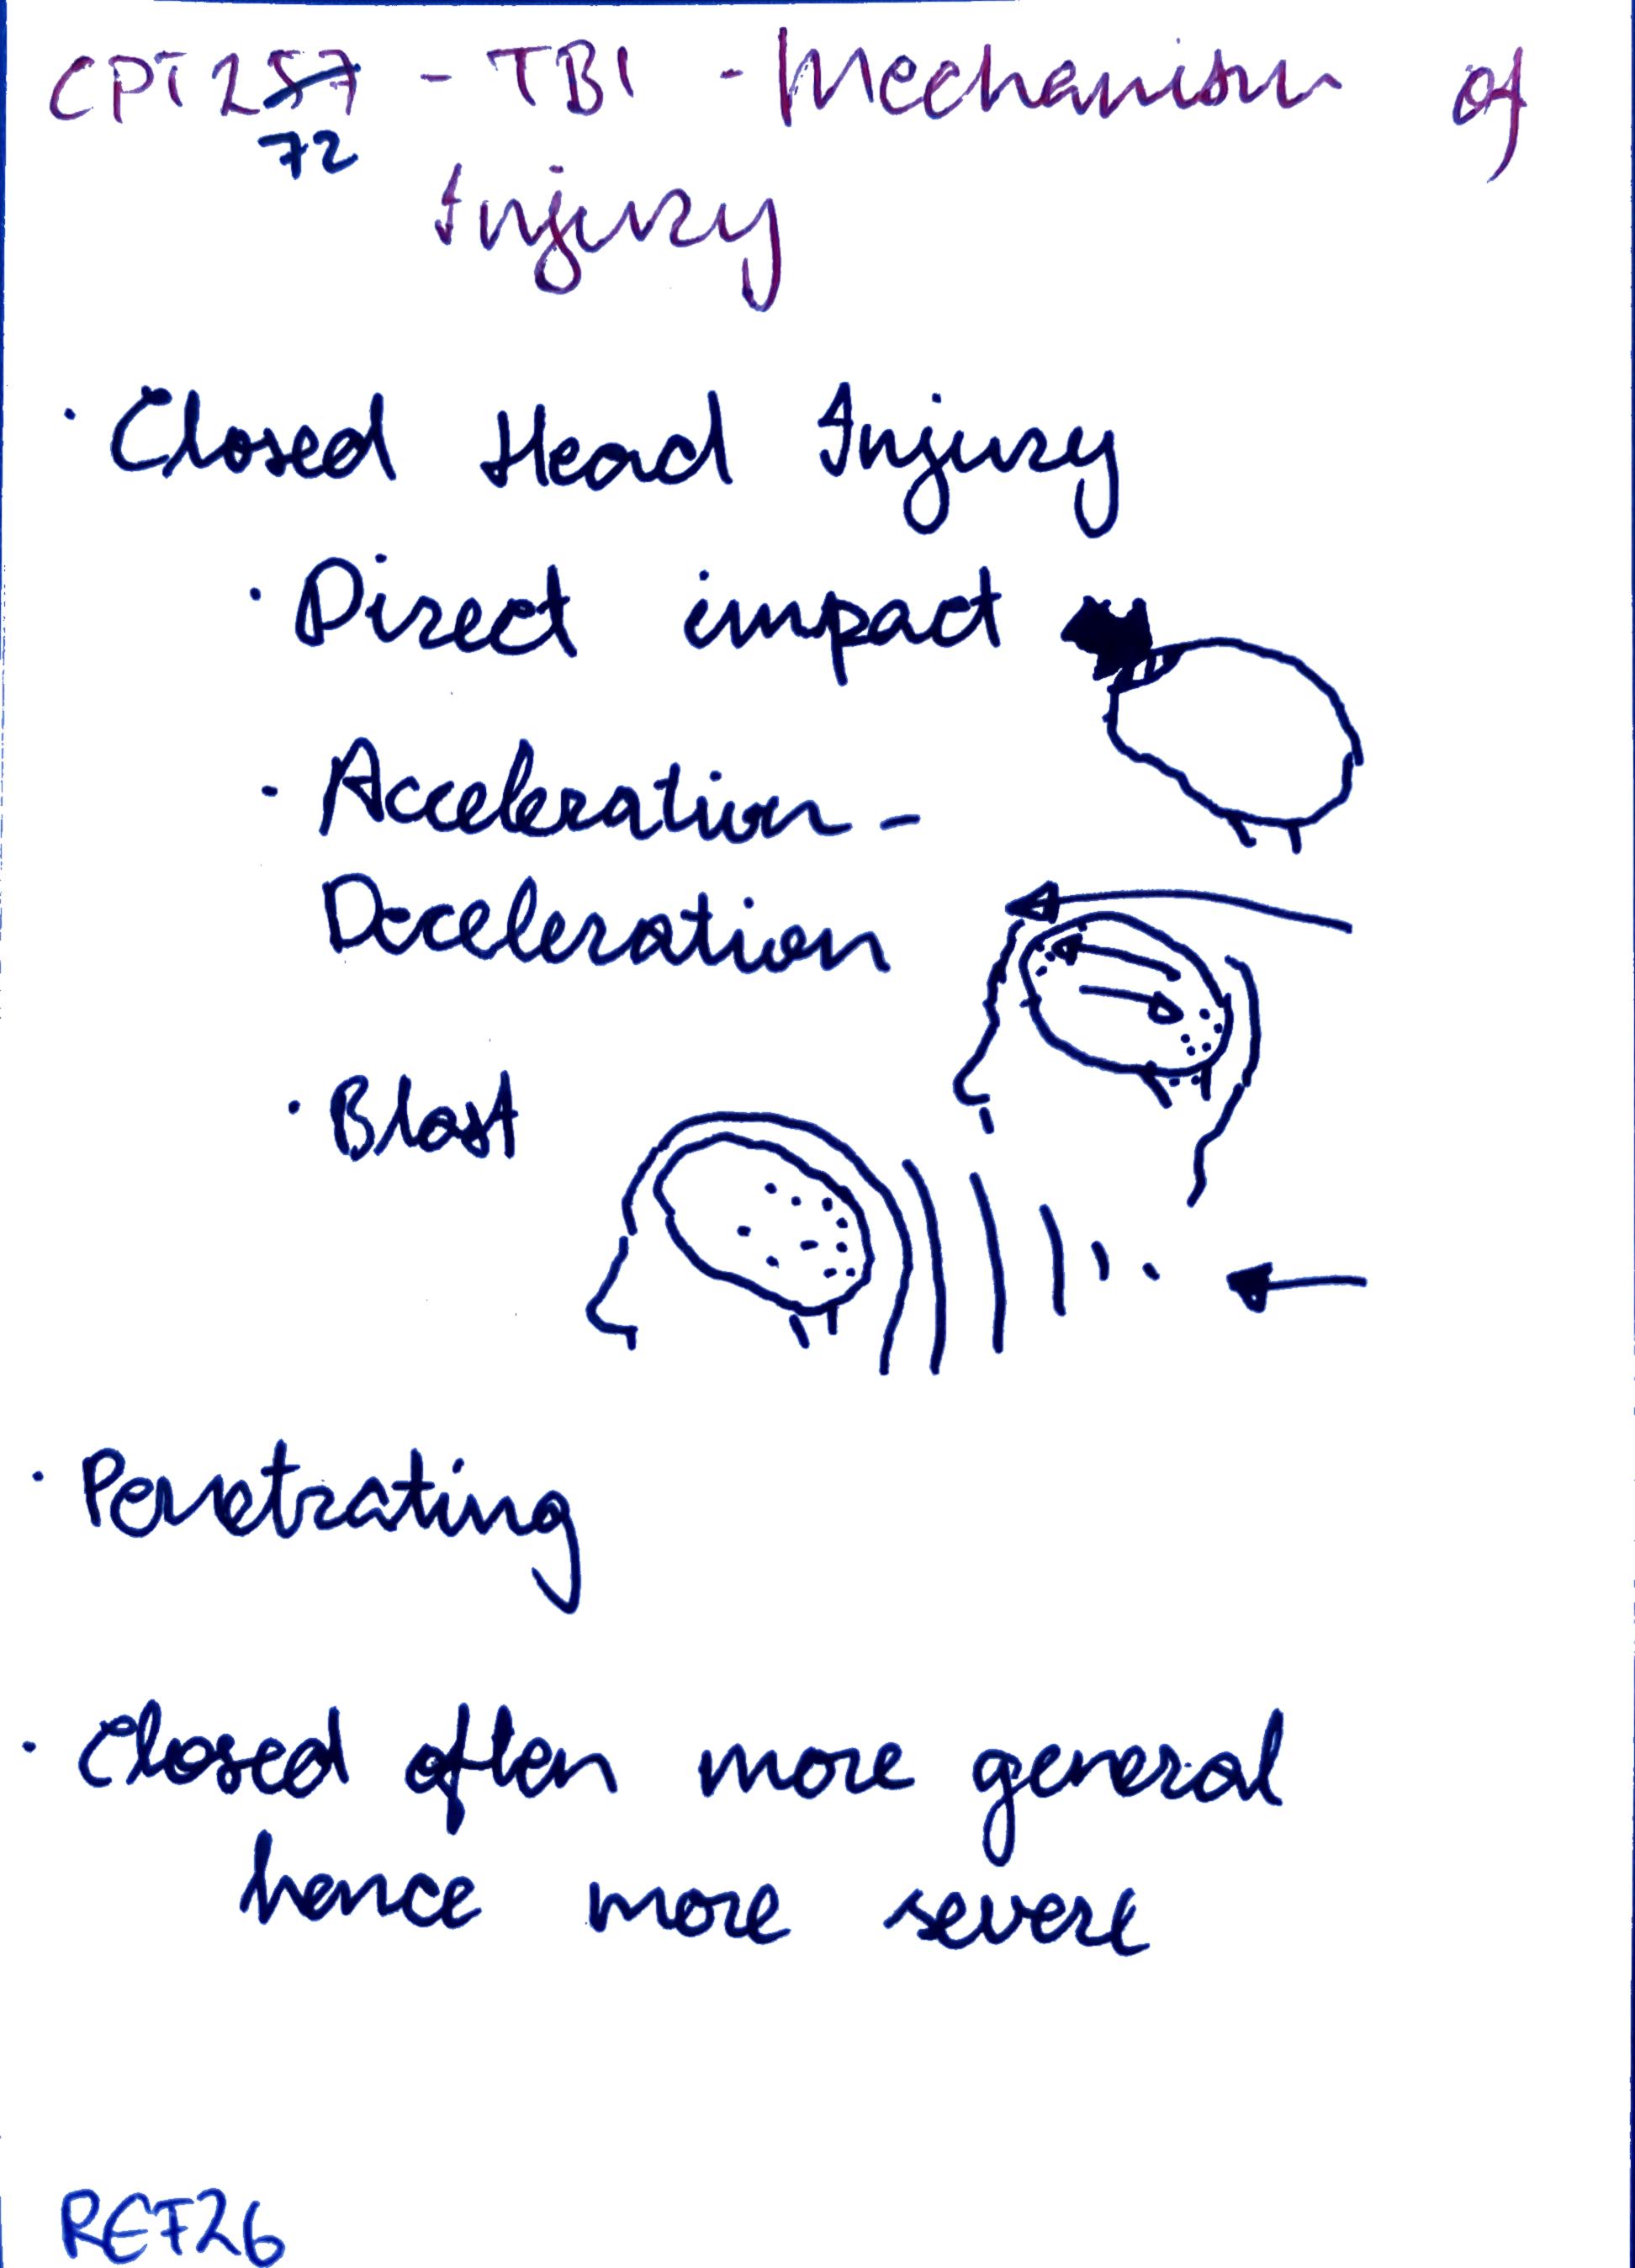 CPT257 - TBI - Mechanism of
72
Injury
· Closed Head Injury
· Direct impact
· Acceleration -
Deceleration
· Blast
· Penetrating
· Closed often more general
hence more severe
REF26